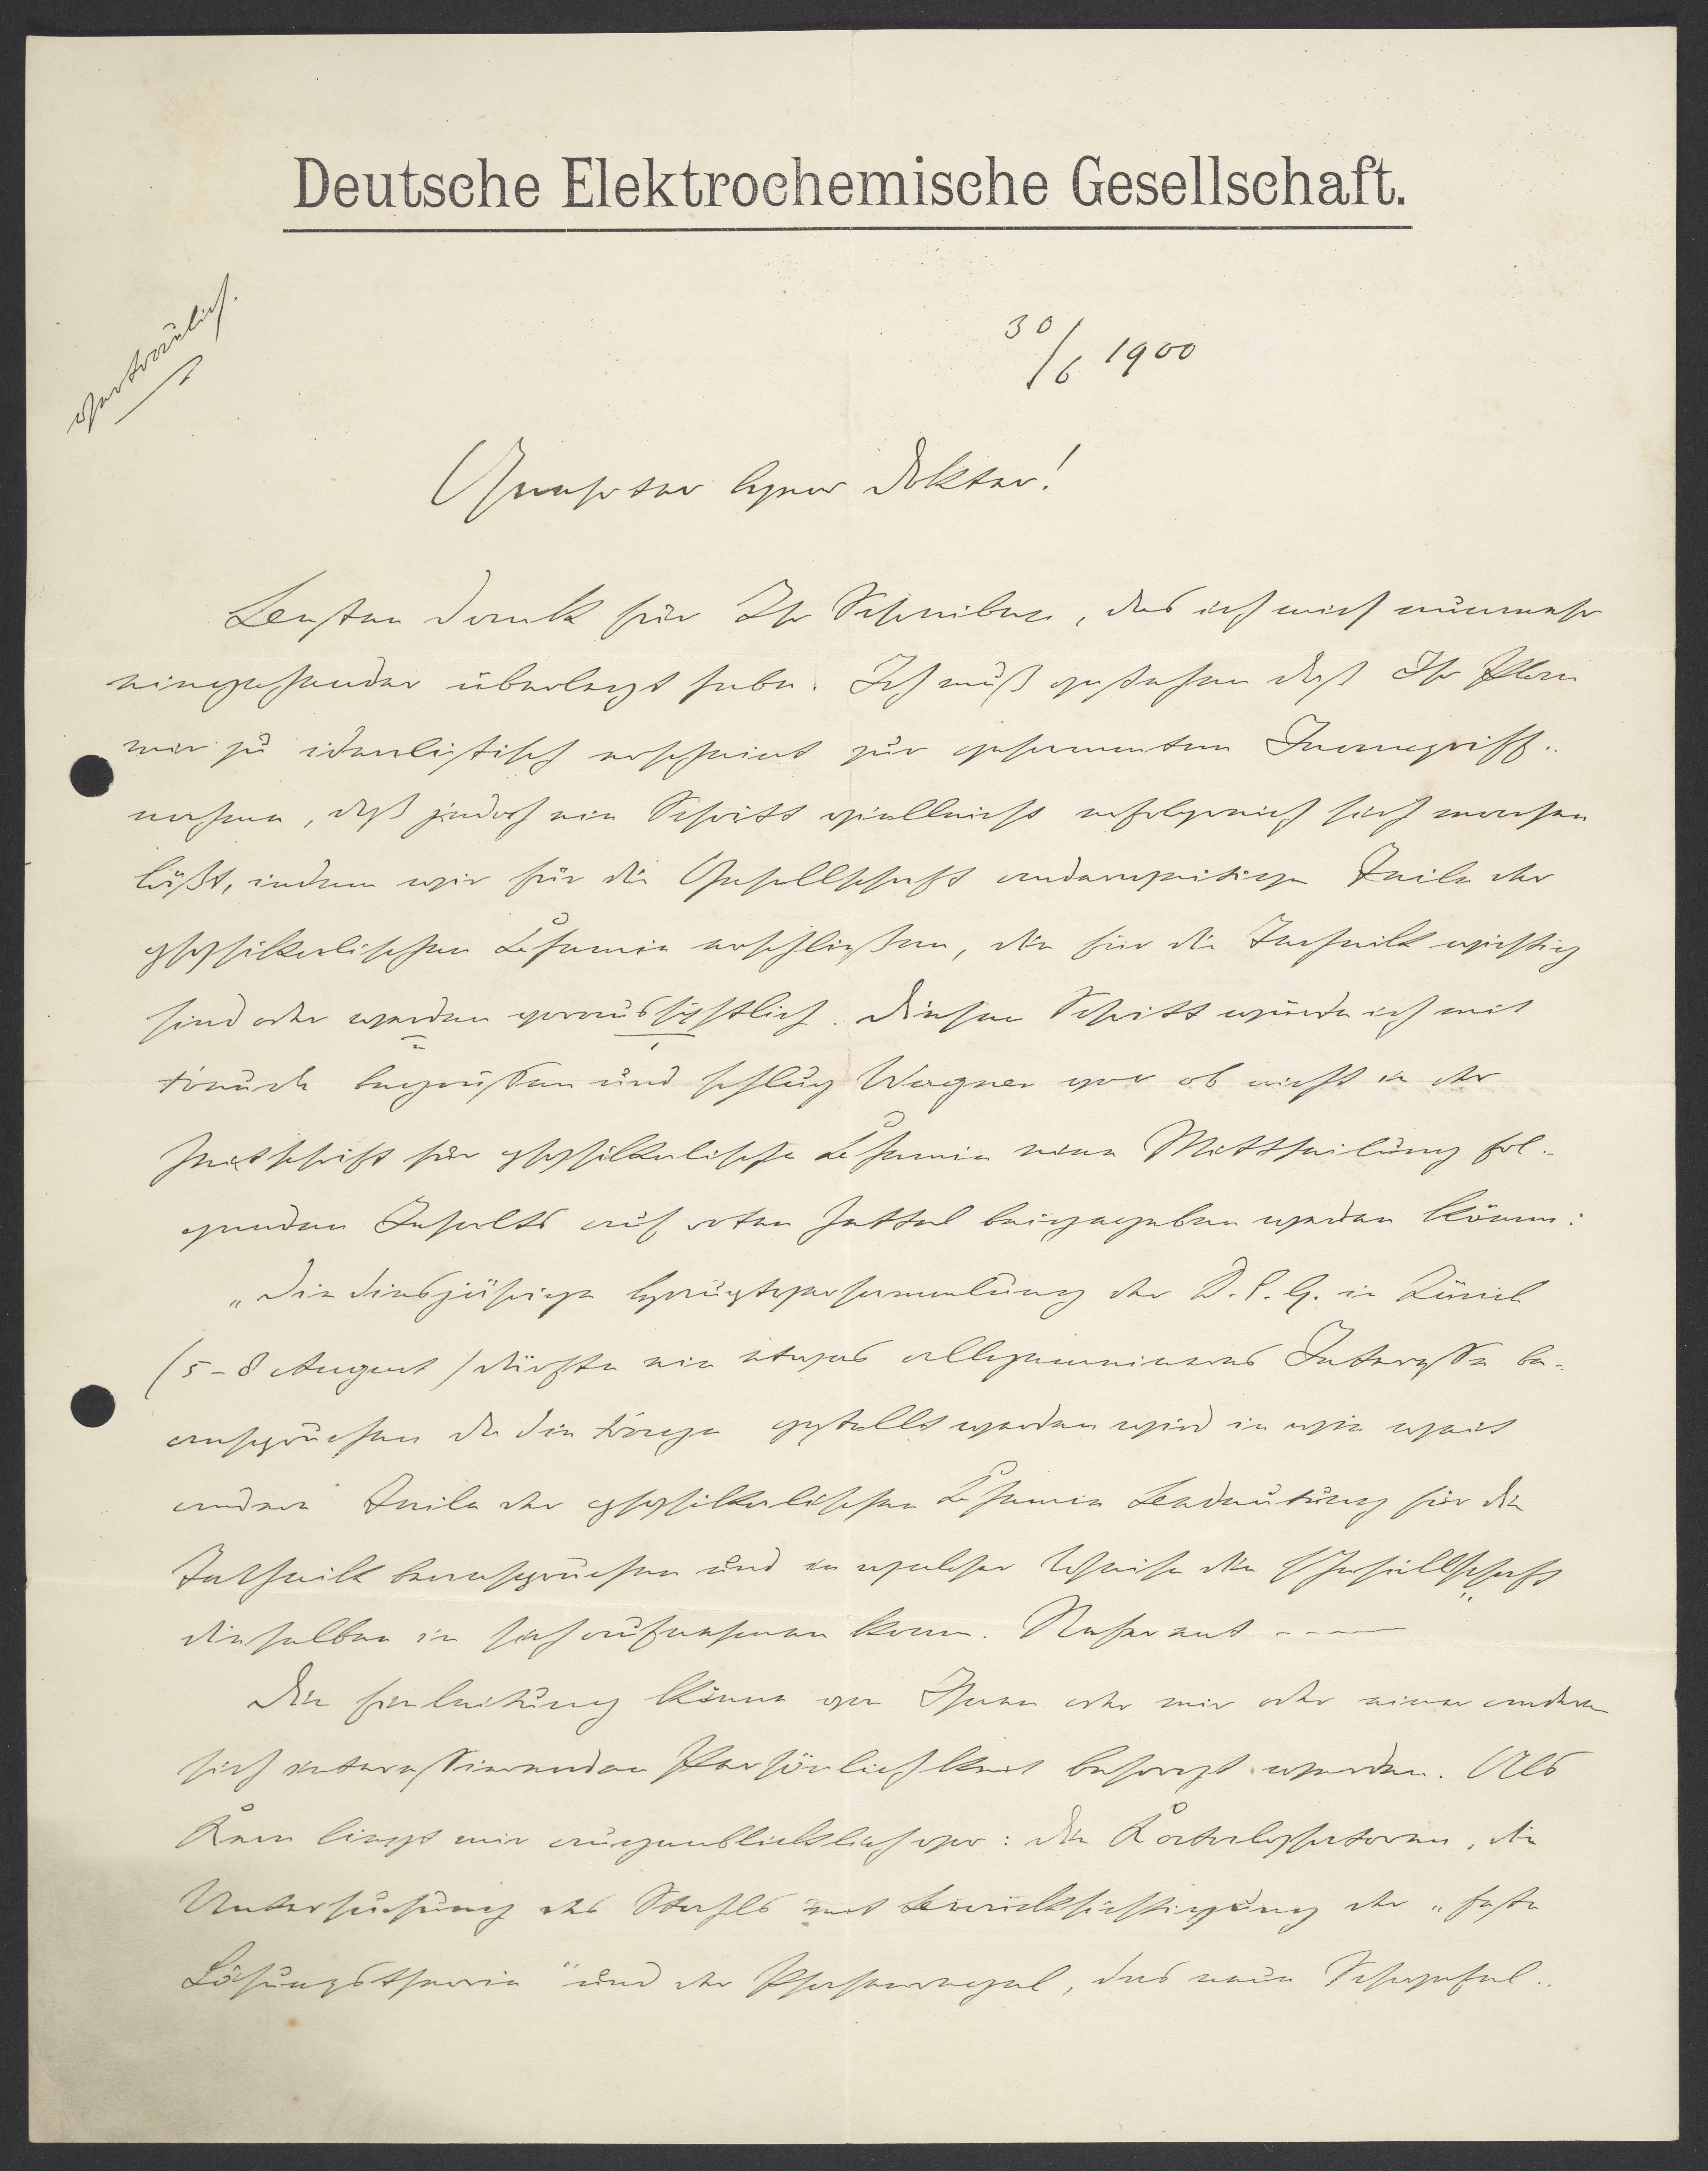 Deutsche Elektrochemische Gesellschaft.
vertraulich.
30/6 1900
Geehrter Herr Doktor!
Besten Dank für Ihr Schreiben, das ich mich nunmehr
eingehender überlegt habe. Ich muß gestehen daß Ihr Plan
mir zu idealistisch erscheint zur gesammten Inangriff-
nahme, daß jedoch ein Schritt vielleicht erfolgreich sich machen
läßt, indem wir für die Gesellschaft anderweitige Teile der
physikalischen Chemie erschließen, die für die Technik wichtig
sind oder werden voraussichtlich. Diesen Schritt würde ich mit
Freude begrüssen und schlug Wagner vor ob nicht in der
Zeitschrift für physikalische Chemie eine Mittheilung fol-
genden Inhalts auf roten Zettel beigegeben werden könne:
„Die diesjährige Hauptversammlung der D.E.G. in Zürich
(5-8 August) dürfte ein etwas allgemeineres Interesse be-
anspruchen da die Frage gestellt werden wird in wie weit
andere Teile der physikalischen Chemie Bedeutung für die
Technik beanspruchen und in welcher Weise die Gesellschaft
dieselben in sich aufnehmen kann. Referent ----
Die Einleitung könne von Ihnen oder mir oder einer andern
sich interessierenden Persönlichkeit besorgt werden. Als
Kern liegt mir augenblicklich vor: die Katalysatoren, die
Untersuchung des Stahls mit Berücksichtigung der „feste
Lösungstheorie" und der Phasenregel, das neue Schwefel-